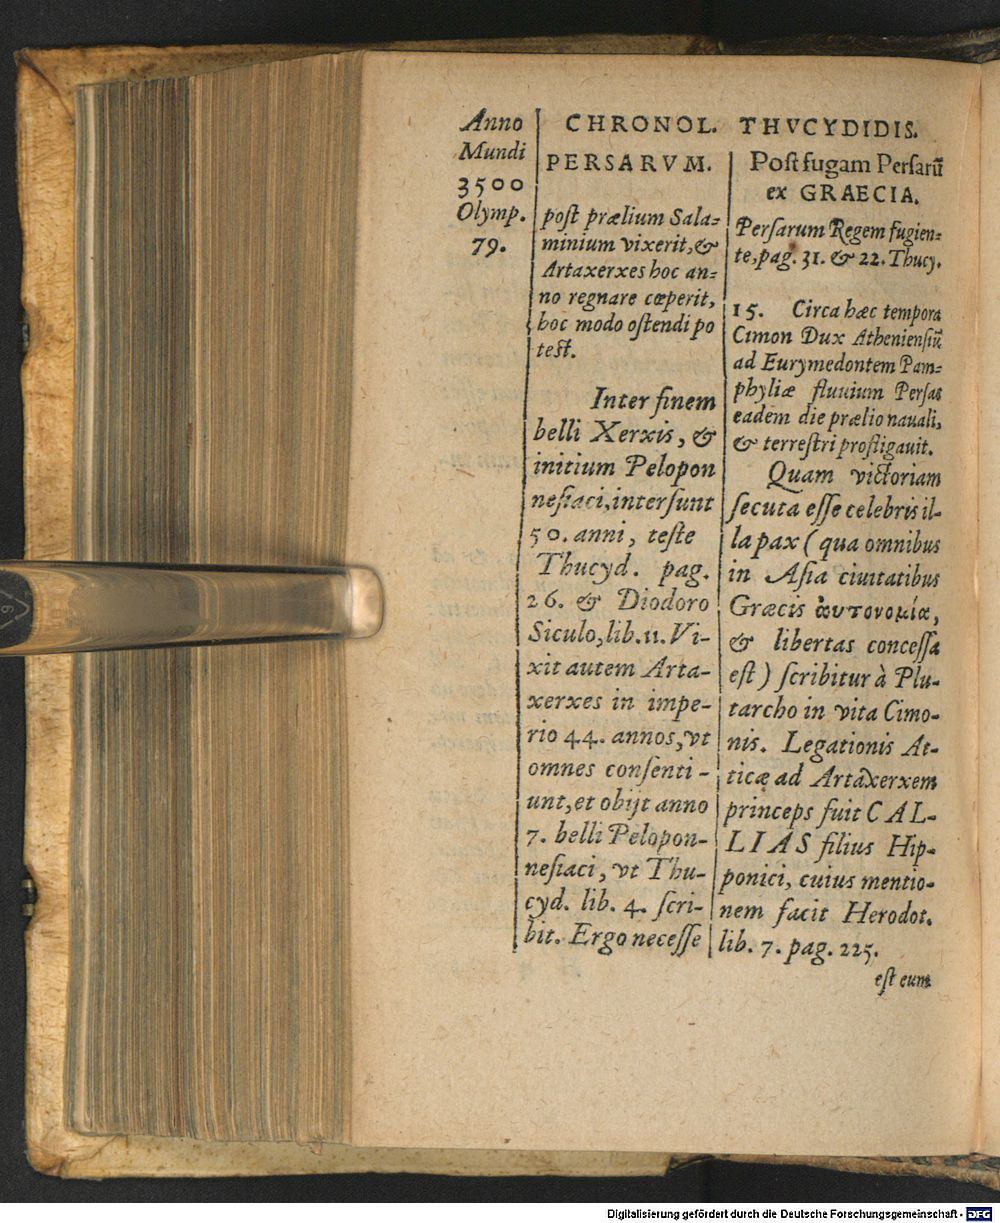 Anno
Mundi
3500
Olymp.
79.
CHRONOL. THVCYDIDIS.
PERSARVM.
post prælium Sala=
minium vixerit, &
Artaxerxes hoc an=
no regnare cœperit,
hoc modo ostendi po
test.
Inter finem
belli Xerxis, &
initium Pelopon
nesiaci, intersunt
50. anni, teste
Thucyd. pag.
26. & Diodoro
Siculo, lib. 11. Vi-
xit autem Arta-
xerxes in impe-
rio 44. annos, vt
omnes consenti-
unt, et obijt anno
7. belli Pelopon-
nesiaci, vt Thu-
cyd. lib. 4. scri-
bit. Ergo necesse
Post fugam Persarū
ex GRAECIA.
Persarum Regem fugien=
te, pag. 31. & 22. Thucy.
15. Circa hæc tempora
Cimon Dux Atheniensiū
ad Eurymedontem Pam=
phyliæ fluuium Persas
eadem die prælio nauali,
& terrestri profligauit.
Quam victoriam
secuta esse celebris il-
la pax (qua omnibus
in Asia ciuitatibus
Græcis ἀυτονομία,
& libertas concessa
est) scribitur à Plu-
tarcho in vita Cimo-
nis. Legationis At-
ticæ ad Artaxerxem
princeps fuit CAL-
LIAS filius Hip-
ponici, cuius mentio-
nem facit Herodot.
lib. 7. pag. 225.
est eum
Digitalisierung gefördert durch die Deutsche Forschungsgemeinschaft - DFG